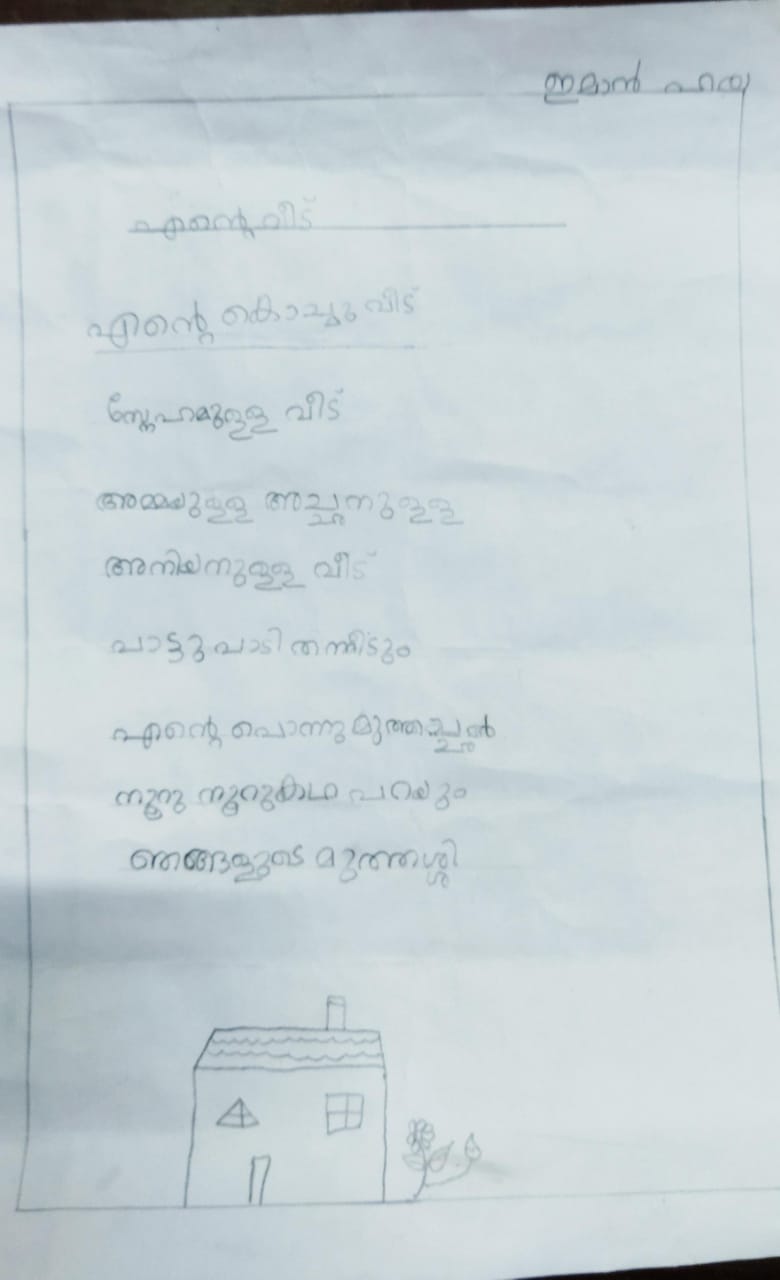 ഇമാൻ ഹയ
എന്റെ വീട്
എന്റെ കൊച്ചു വീട്
സ്നേഹമുള്ള വീട്
അമ്മയുള്ള അച്ഛനുള്ള
അനിയനുള്ള വീട്
പാട്ടു പാടി തന്നീടും
എന്റെ പൊന്നു മുത്തച്ഛൻ
നൂറു നൂറു കഥ പറയും
ഞങ്ങളുടെ മുത്തശ്ശി